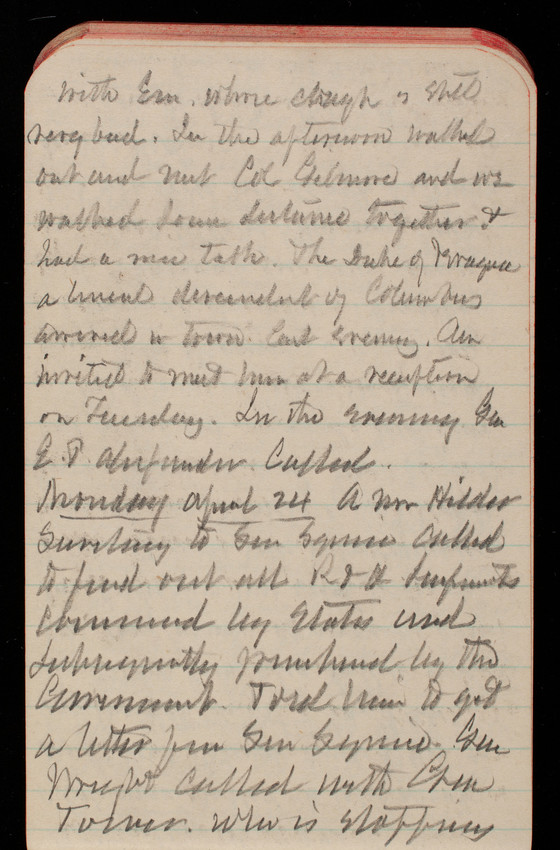 with Em. whose cough is still
very bad. In the afternoon walked
out and met Col Gilmore and we
walked some distance together &
had a nice talk. The Duke of Veragua
a lineal descendent of Columbus
arrived in town last evening. Am
invited to meet him at a reception
on Tuesday. In the evening Gen
E. P. Alexander Called.
Monday April 24 A Mr Hilder
Secretary to Gen Squier Called
to find out all R & H
commenced by States and
subsequently purchased by the
Government. Told him to get
a letter from Gen Squier. Gen
Wright Called with Gen
Tower. Who is stopping